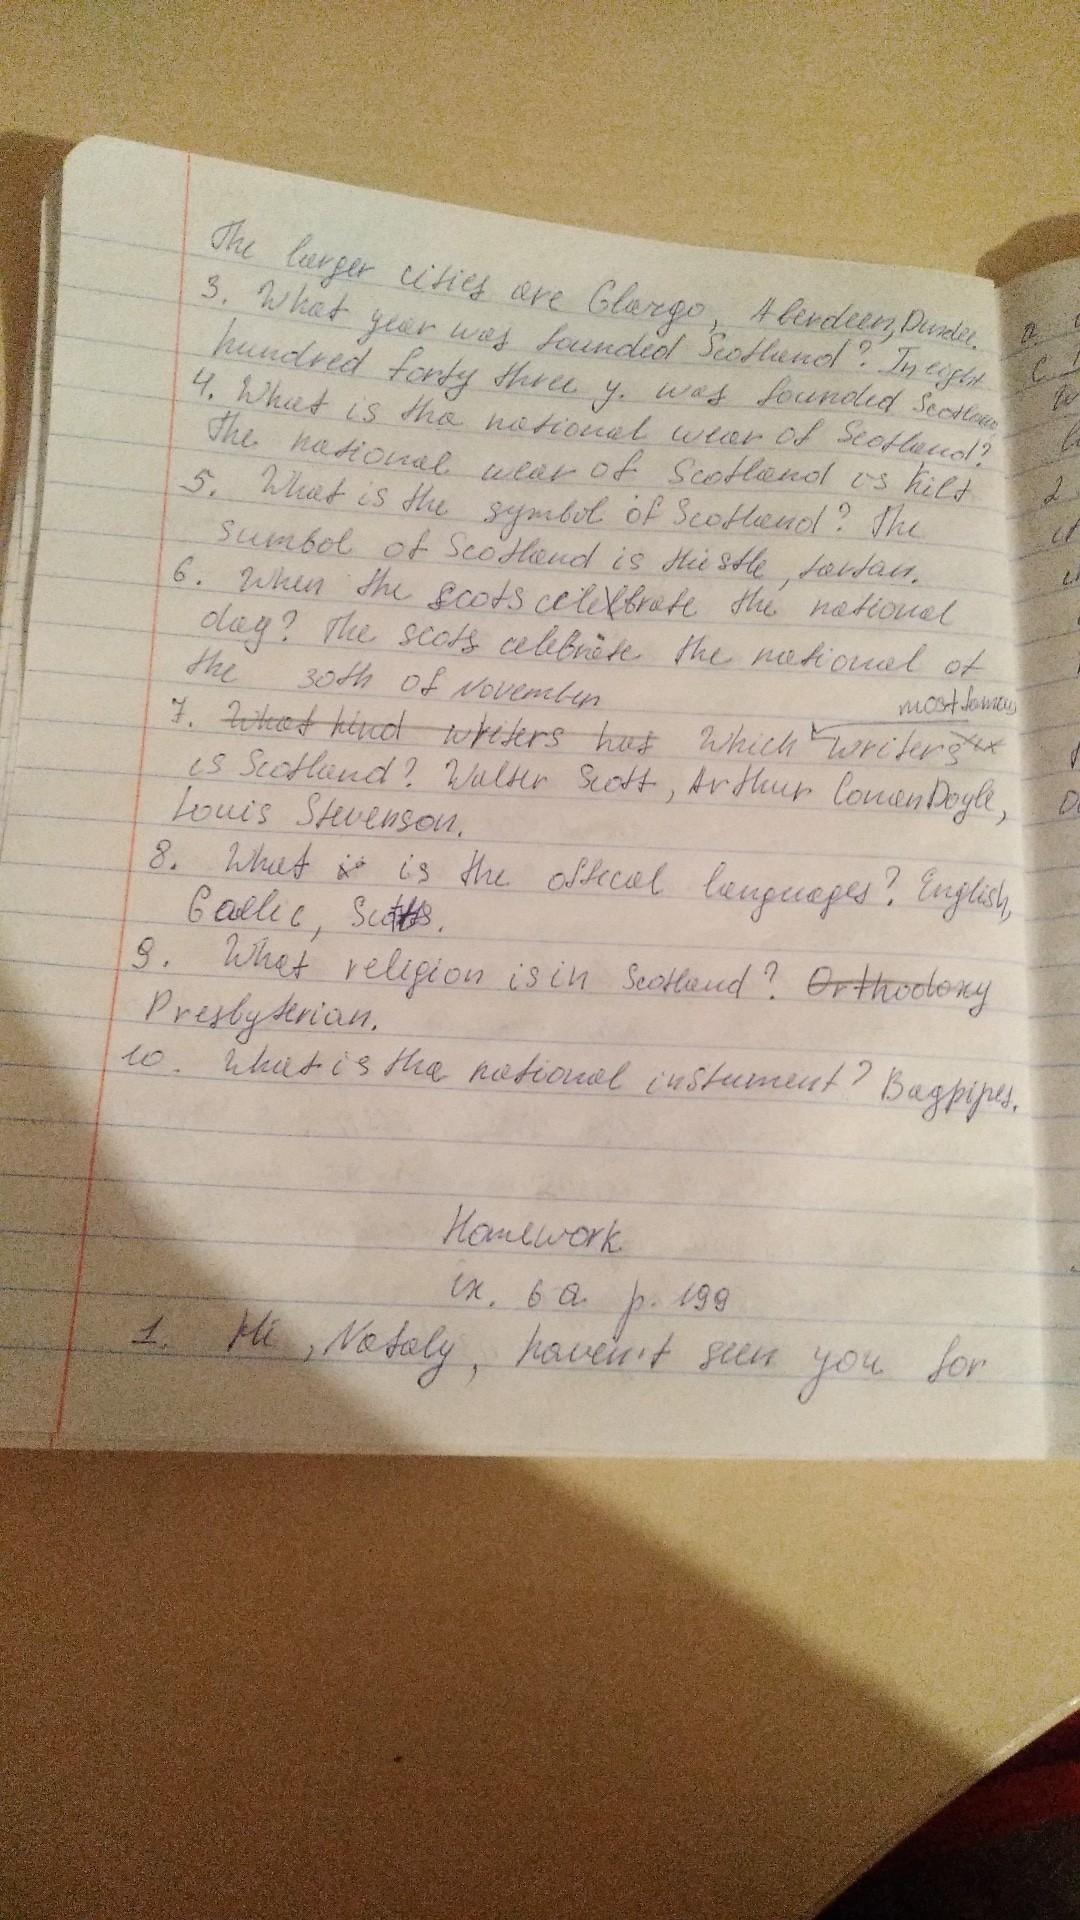 The larger cities are Glazgo, Aberdeen, Dundee.
3. What year was founded Scotland? In eight
hundred forty three y. was founded Scotland
4. What is the national wear of Scotland?
The national wear of Scotland is kilt
5. What is the symbol of Scotland? The
sumbol of Scotland is thistle, tartan.
6. When the scots celebrate the national
day? The scots celebrate the national at
the 30th of November
most famous
7. What kind writers has Which writers
is Scotland? Walter Scott, Arthur Conan Doyle,
Louis Stevenson.
8. What is the offical languages? English,
Gaelic, Scots.
9. What religion is in Scotland? Orthodoxy
Presbyterian.
10. What is the national instument? Bagpipes.
Homework
ex. 6 a p. 199
1. Hi, Nataly, haven't seen you for